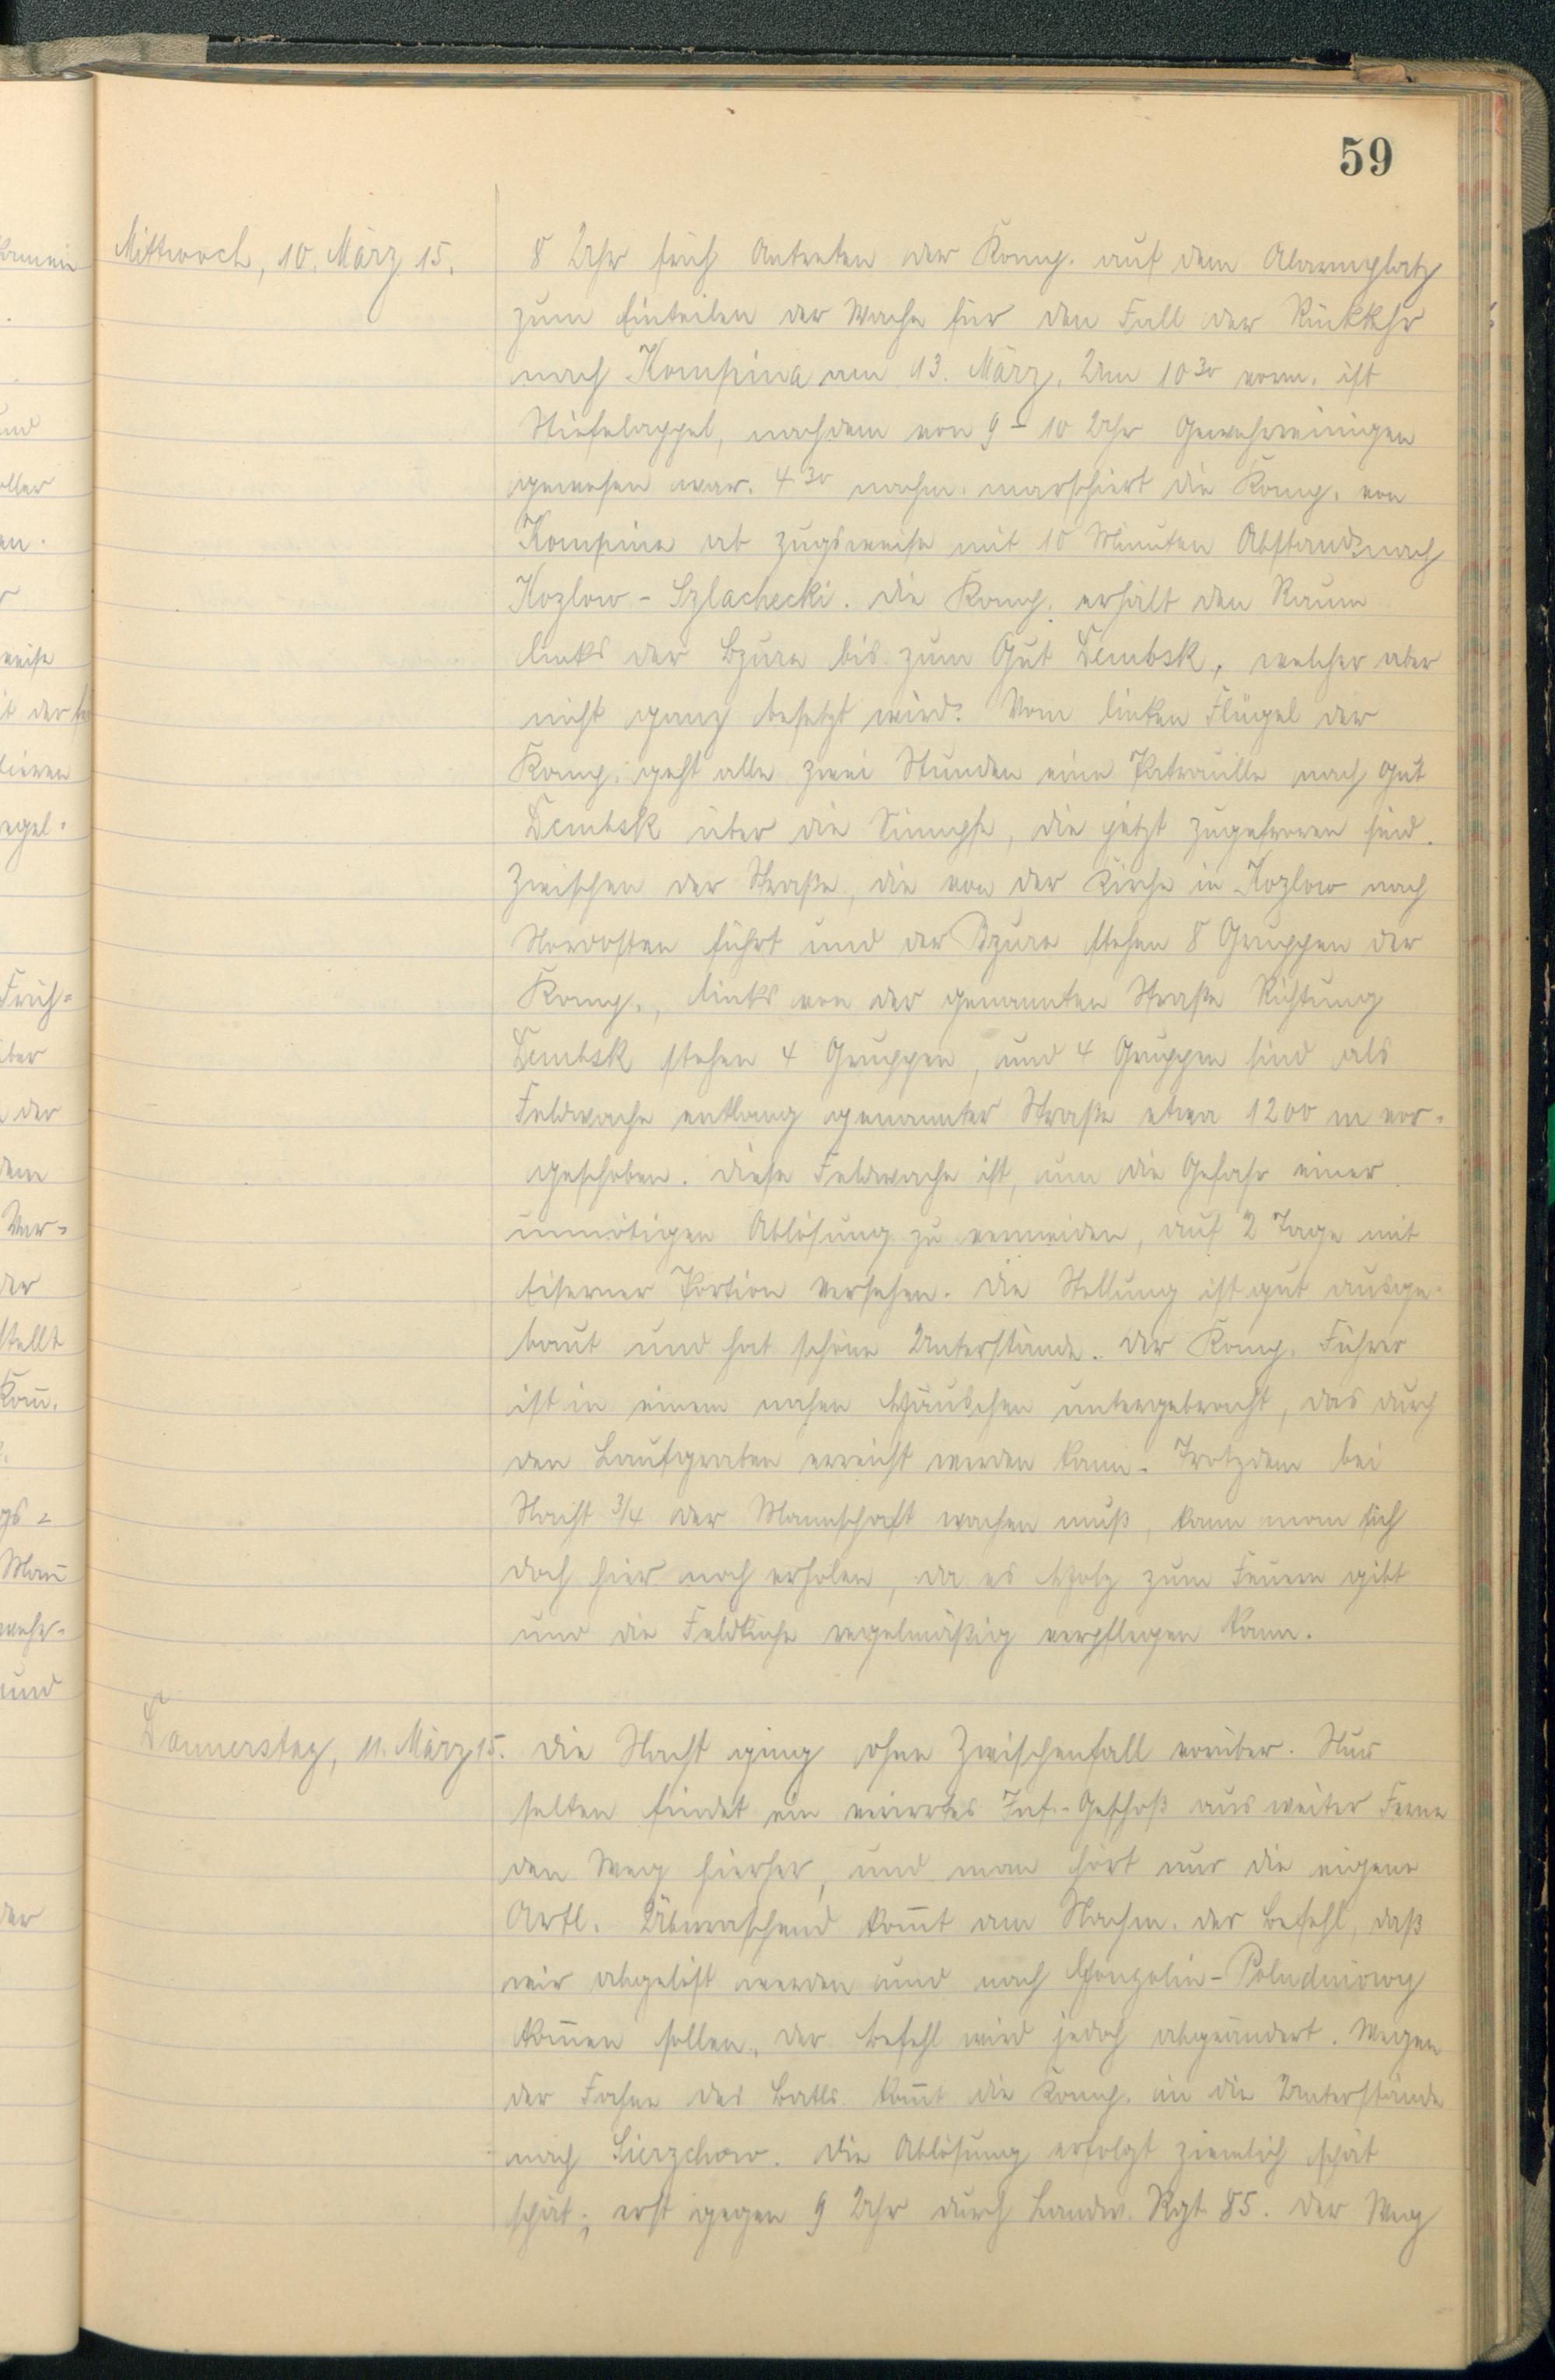 59
Mittwoch, 10. März 15.
8 Uhr früh Antreten der Komp. auf dem Alarmplatz
zum Einteilen der Wache für den Fall der Rückkehr
nach Kompina am 13. März. Um 10³⁰ vorm. ist
Stiefelappel, nachdem von 9 – 10 Uhr Gewehrreinigen
gewesen war. 4³⁰ nachm. marschiert die Komp. von
Kompina ab zugsweise mit 10 Minuten Abstand nach
Kozlow – Szlachecki. Die Komp. erhält den Raum
links der Bzura bis zum Gut Dembsk, welcher aber
nicht ganz besetzt wird. Vom linken Flügel der
Komp. geht alle zwei Stunden eine Patrouille nach Gut
Dembsk über die Sümpfe, die jetzt zugefroren sind.
Zwischen der Straße, die von der Kirche in Kozlow nach
Nordosten führt und der Bzura stehen 8 Gruppen der
Komp., links von der genannten Straße Richtung
Dembsk stehen 4 Gruppen, und 4 Gruppen sind als
Feldwache entlang genannter Straße etwa 1200 m vor-
geschoben. Diese Feldwache ist, um die Gefahr einer
unnötigen Ablösung zu vermeiden, auf 2 Tage mit
Eiserner Portion versehen. Die Stellung ist gut ausge-
baut und hat schöne Unterstände. Der Komp. Führer
ist in einem nahen Häuschen untergebracht, das durch
den Laufgraben erreicht werden kann. Trotzdem bei
Nacht 3/4 der Mannschaft wachen muß, kann man sich
doch hier noch erholen, da es Holz zum Feuern gibt
und die Feldküche regelmäßig verpflegen kann.
Donnerstag, 11. März 15.
Die Nacht ging ohne Zwischenfall vorüber. Nur
selten findet ein verirrtes Inf.-Geschoß aus weiter Ferne
den Weg hierher, und man hört nur die eigene
Artl. Überraschend kom̄t am Nachm. der Befehl, daß
wir abgelöst werden und nach Gongolin-Poludniowy
kom̄en sollen, der Befehl wird jedoch abgeändert. Wegen
der Fahne des Batls. kom̄t die Komp. in die Unterstände
nach Sierzchow. Die Ablösung erfolgt ziemlich spät
spät; erst gegen 9 Uhr durch Landw. Rgt. 85. Der Weg